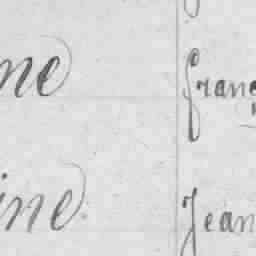 ne franç
ine Jean